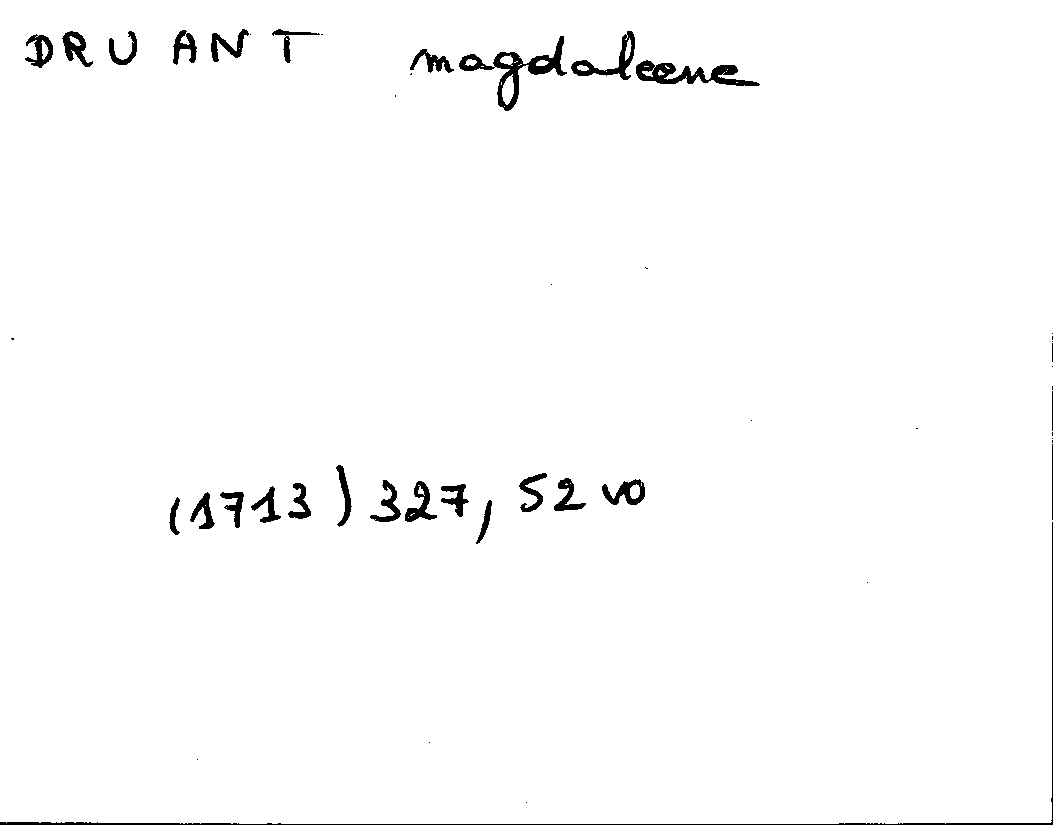 DRUANT magdaleene
(1713) 327, 52 vo